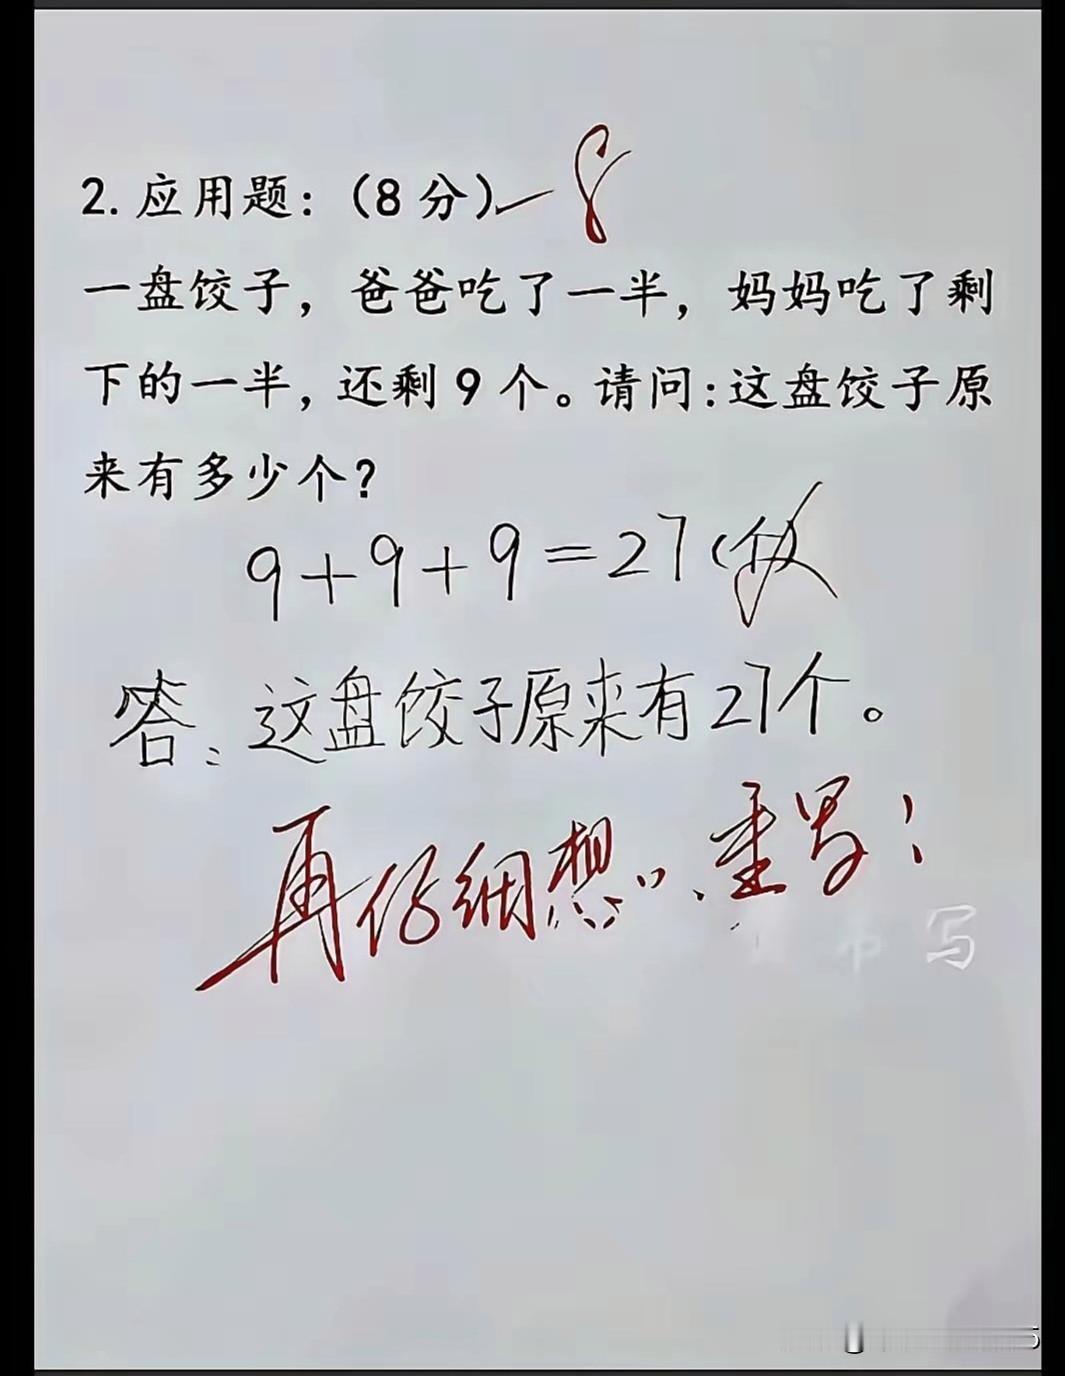 2. 应用题：(8分) -8
一盘饺子，爸爸吃了一半，妈妈吃了剩
下的一半，还剩9个。请问：这盘饺子原
来有多少个？
9+9+9=27(个)
答：这盘饺子原来有27个。
再仔细想，重写！
写